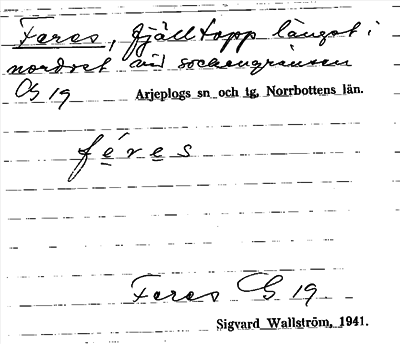 Feres, fjälltopp längst i
nordost vid sockengränsen
G 19 Arjeplogs sn och tg, Norrbottens län.
féres
Feres G 19
Sigvard Wallström, 1941.